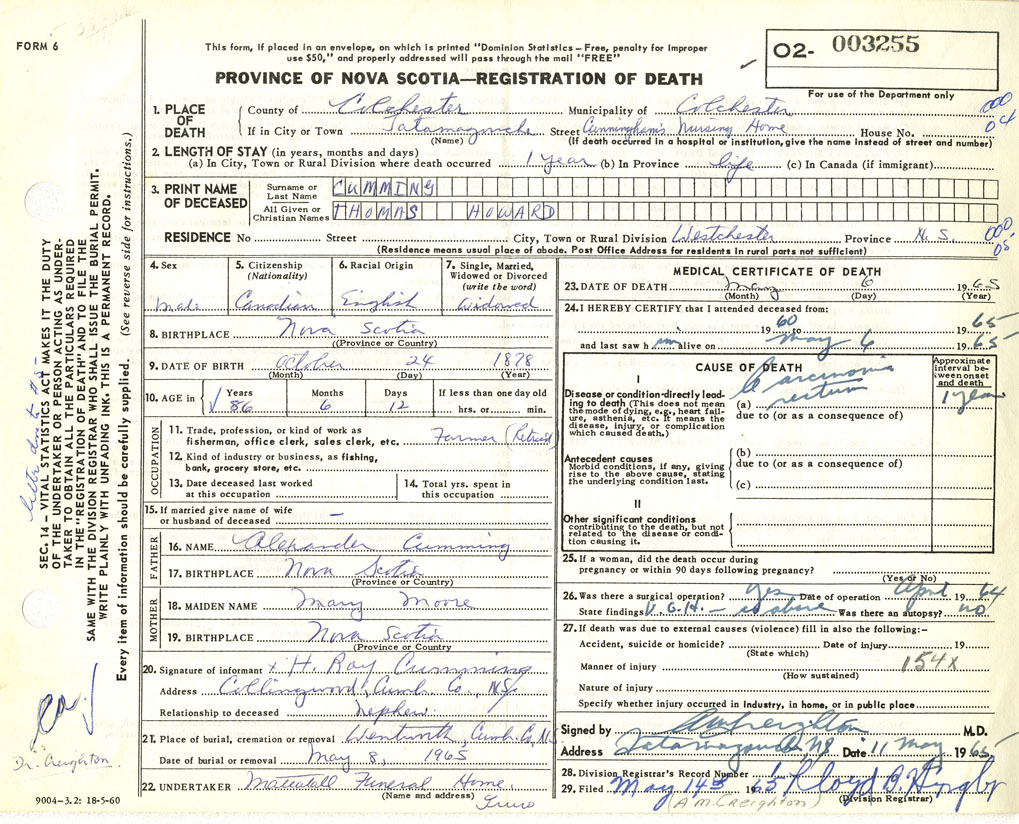 FORM 6
This form, if placed in an envelope, on which is printed "Dominion Statistics – Free, penalty for improper
use $50," and properly addressed will pass through the mail "FREE"
PROVINCE OF NOVA SCOTIA—REGISTRATION OF DEATH
O2- 003255
For use of the Department only
1. PLACE OF DEATH
County of Colchester Municipality of Colchester 000
If in City or Town Tatamagouche Street Cunningham's Nursing Home House No. 04
(Name) (If death occurred in a hospital or institution, give name instead of street and number)
2. LENGTH OF STAY (in years, months and days)
(a) In City, Town or Rural Division where death occurred 1 year (b) In Province life (c) In Canada (if immigrant)
3. PRINT NAME OF DECEASED
Surname or Last Name CUMMING
All Given or Christian Names THOMAS HOWARD
RESIDENCE No Street City, Town or Rural Division Westchester Province N. S. 000 05
(Residence means usual place of abode. Post Office Address for residents in rural parts not sufficient)
4. Sex
male
5. Citizenship (Nationality)
Canadian
6. Racial Origin
English
7. Single, Married, Widowed or Divorced (write the word)
Widowed
8. BIRTHPLACE Nova Scotia
((Province or Country)
9. DATE OF BIRTH October 24 1878
(Month) (Day) (Year)
10. AGE in Years Months Days If less than one day old
86 6 12 hrs. or min.
OCCUPATION
11. Trade, profession, or kind of work as
fisherman, office clerk, sales clerk, etc. Farmer (Retired)
12. Kind of industry or business, as fishing,
bank, grocery store, etc.
13. Date deceased last worked
at this occupation
14. Total yrs. spent in
this occupation
15. If married give name of wife
or husband of deceased –
FATHER
16. NAME Alexander Cumming
17. BIRTHPLACE Nova Scotia
(Province or Country)
MOTHER
18. MAIDEN NAME Mary Moore
19. BIRTHPLACE Nova Scotia
(Province or Country)
20. Signature of informant x H. Ray Cumming
Address Collingwood, Cumb. Co., N.S.
Relationship to deceased nephew.
21. Place of burial, cremation or removal Wentworth, Cumb. Co, N.
Date of burial or removal May 8, 1965
22. UNDERTAKER Mattatall Funeral Home,
(Name and address) Truro
MEDICAL CERTIFICATE OF DEATH
23. DATE OF DEATH May 6 1965
(Month) (Day) (Year)
24. I HEREBY CERTIFY that I attended deceased from:
1960 1965
and last saw him alive on May 6 1965
CAUSE OF DEATH
Approximate interval between onset and death
I
Disease or condition directly leading to death (This does not mean the mode of dying, e.g., heart failure, asthenia, etc. It means the disease, injury, or complication which caused death.)
(a) Carcinoma rectum 1 year
due to (or as a consequence of)
Antecedent causes
Morbid conditions, if any, giving rise to the above cause, stating the underlying condition last.
(b)
due to (or as a consequence of)
(c)
II
Other significant conditions
contributing to the death, but not related to the disease or condition causing it.
25. If a woman, did the death occur during
pregnancy or within 90 days following pregnancy?
(Yes or No)
26. Was there a surgical operation? yes Date of operation April 1964
State findings V. G. H. – as above Was there an autopsy? no
27. If death was due to external causes (violence) fill in also the following:–
Accident, suicide or homicide? Date of injury 19
(State which)
Manner of injury 154X
(How sustained)
Nature of injury
Specify whether injury occurred in industry, in home, or in public place
Signed by AMCreighton M.D.
Address Tatamagouche NS Date 11 May 1965
28. Division Registrar's Record Number
29. Filed May 14 1965 Lloyd B.
A M. Creighton) (Division Registrar)
SEC. 14 – VITAL STATISTICS ACT MAKES IT THE DUTY
OF THE UNDERTAKER OR PERSON ACTING AS UNDER-
TAKER TO OBTAIN ALL THE PARTICULARS REQUIRED
IN THE "REGISTRATION OF DEATH" AND TO FILE THE
SAME WITH THE DIVISION REGISTRAR WHO SHALL ISSUE THE BURIAL PERMIT.
WRITE PLAINLY WITH UNFADING INK. THIS IS A PERMANENT RECORD.
Every item of information should be carefully supplied. (See reverse side for instructions.)
Dr. Creighton.
9004-3.2: 18-5-60